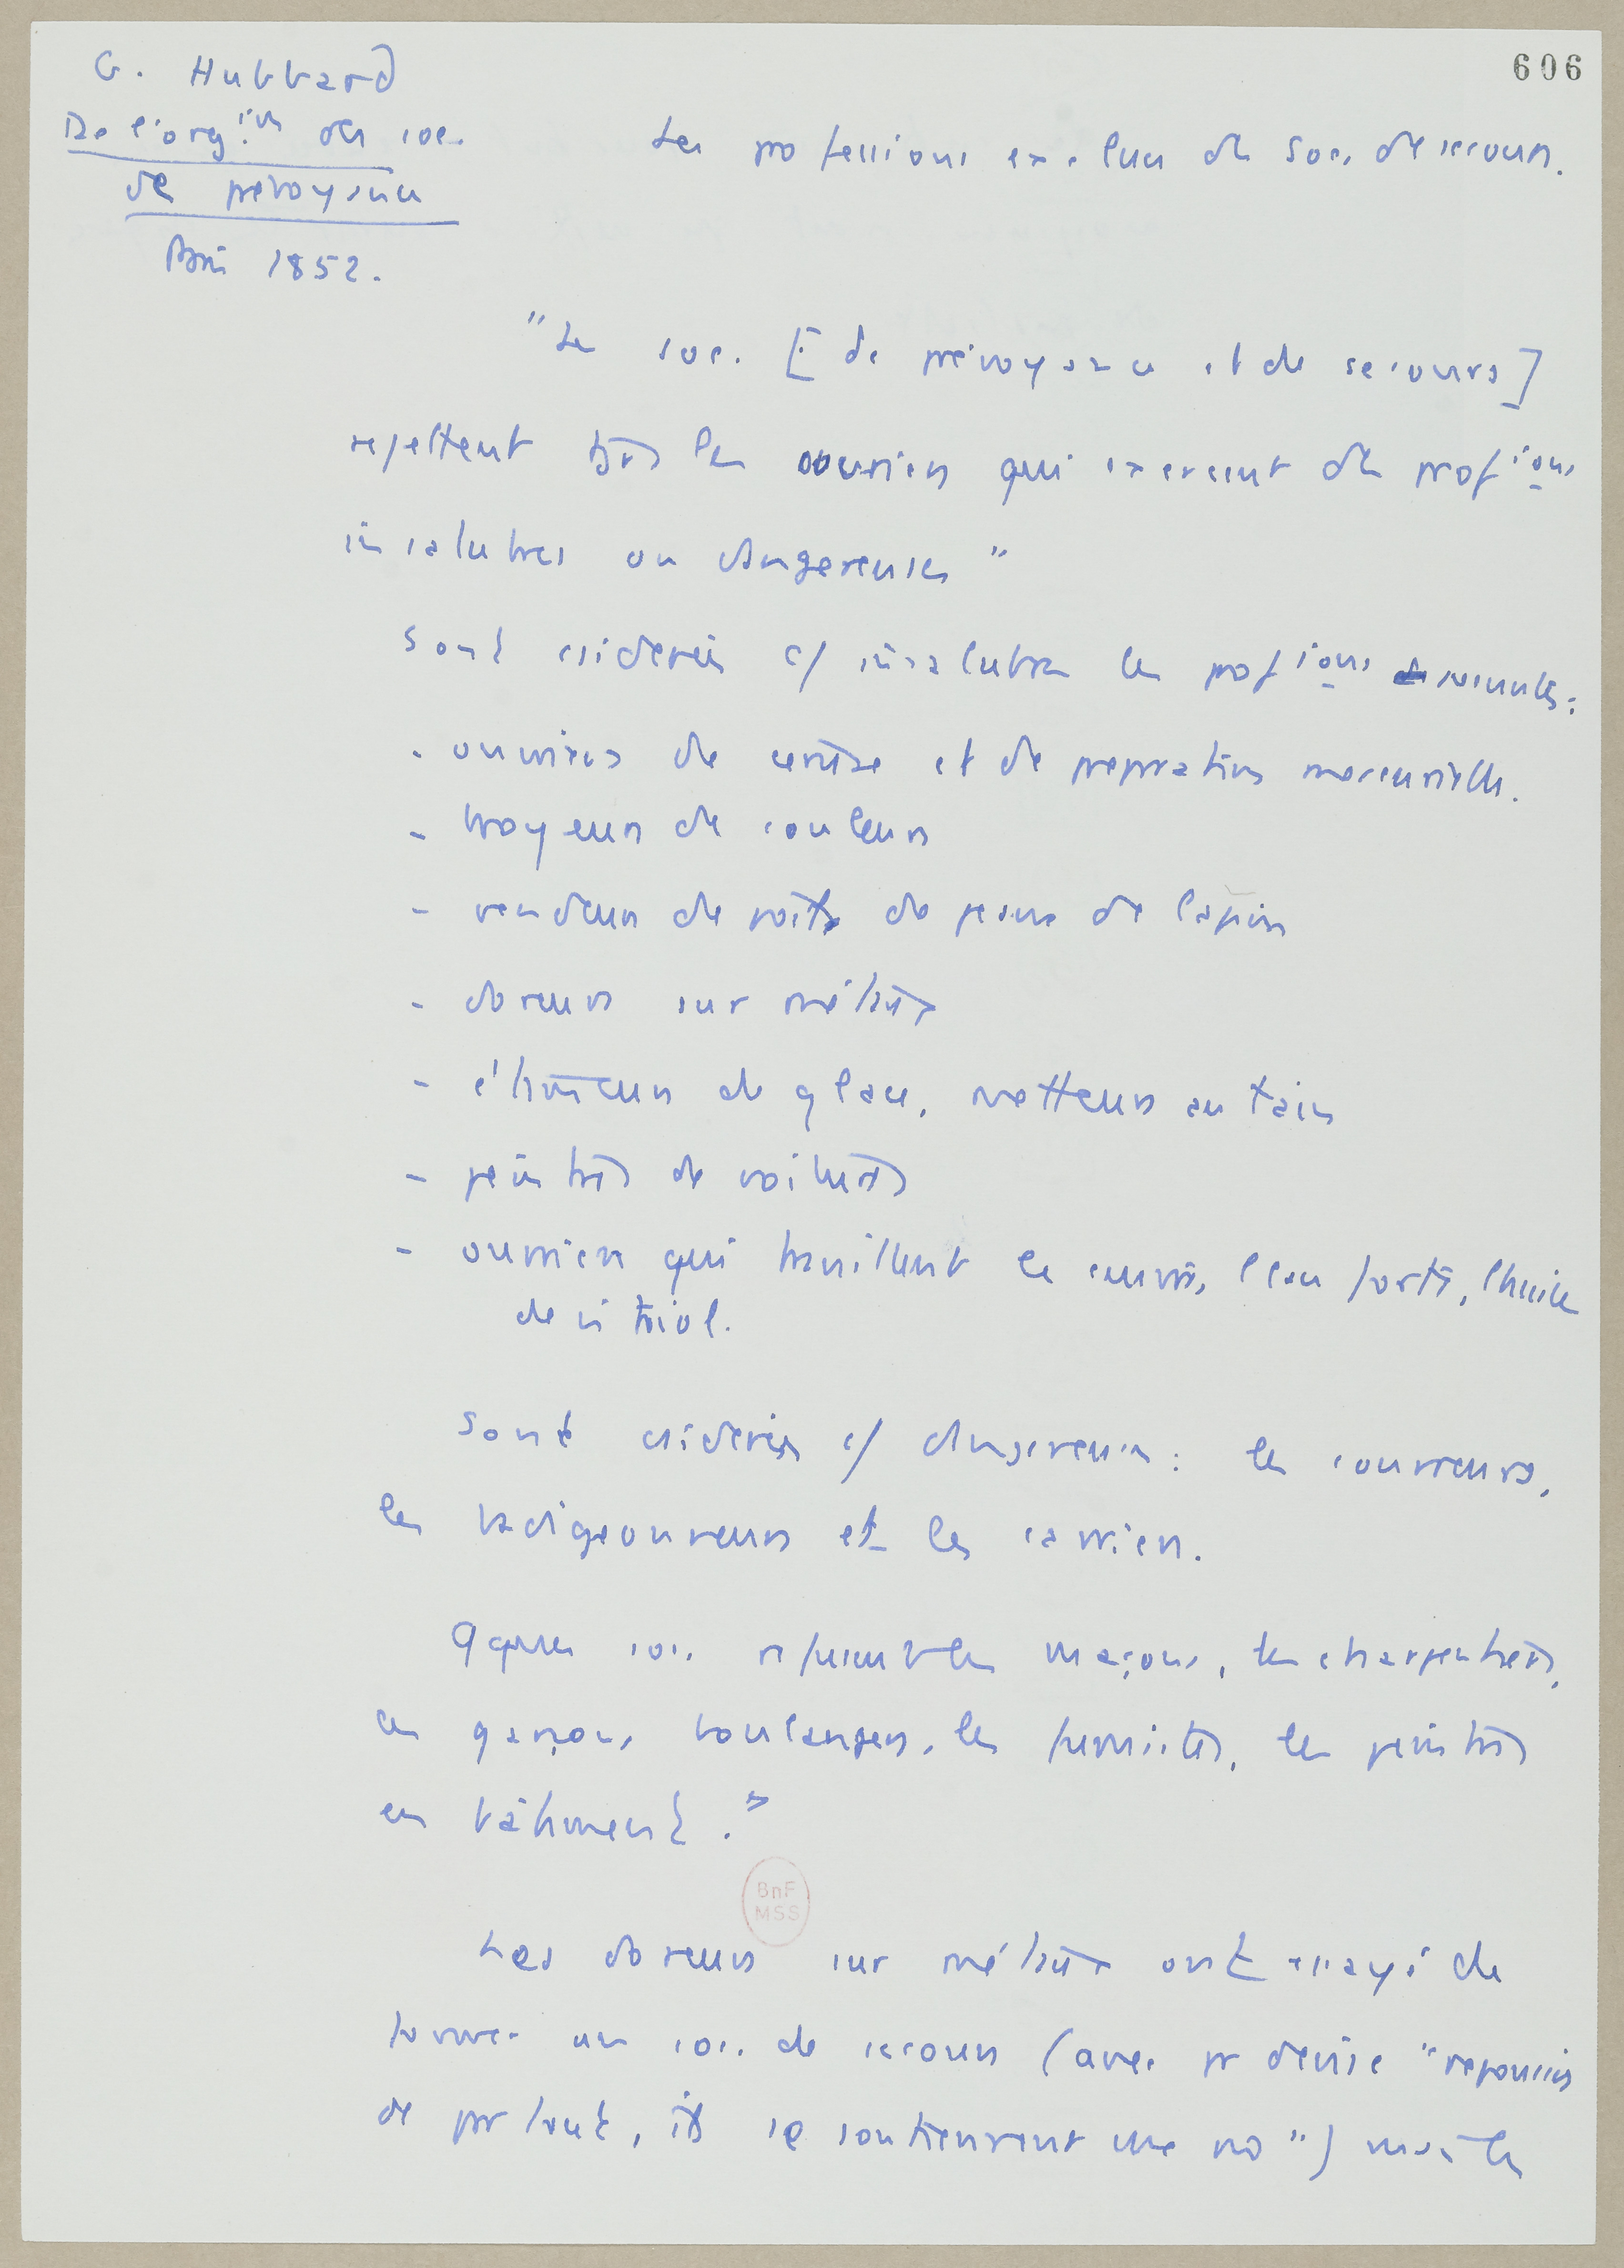 606
G. Hubbard
De l'org.ion des soc.
de prévoyance
Paris 1852.
Les professions exclues des Soc. de secours.
"Les soc. [de prévoyance et de secours]
rejettent tous les ouvriers qui exercent des prof.ions
insalubres ou dangereuses"
Sont csidérées c/ insalubres les prof.ions suivantes :
- ouvriers de céruse et de préparations mercurielles.
- broyeurs de couleurs
- vendeurs de poils de peaux de lapins
- doreurs sur métaux
- étameurs de glace, metteurs au tain
- peintres de voitures
- ouvriers qui travaillent le cuivre, l'eau forte, l'huile
de vitriol.
Sont csidérées c/ dangereuses : les couvreurs,
les badigeonneurs et les carriers.
Qques soc. refusent les maçons, les charpentiers,
les garçons boulangers, les fumistes, les peintres
en bâtiment."
BnF
MSS
Les doreurs sur métaux ont essayé de
former une soc. de secours (avec pr devise "repoussés
de partout, ils se soutiennent une no") mais les